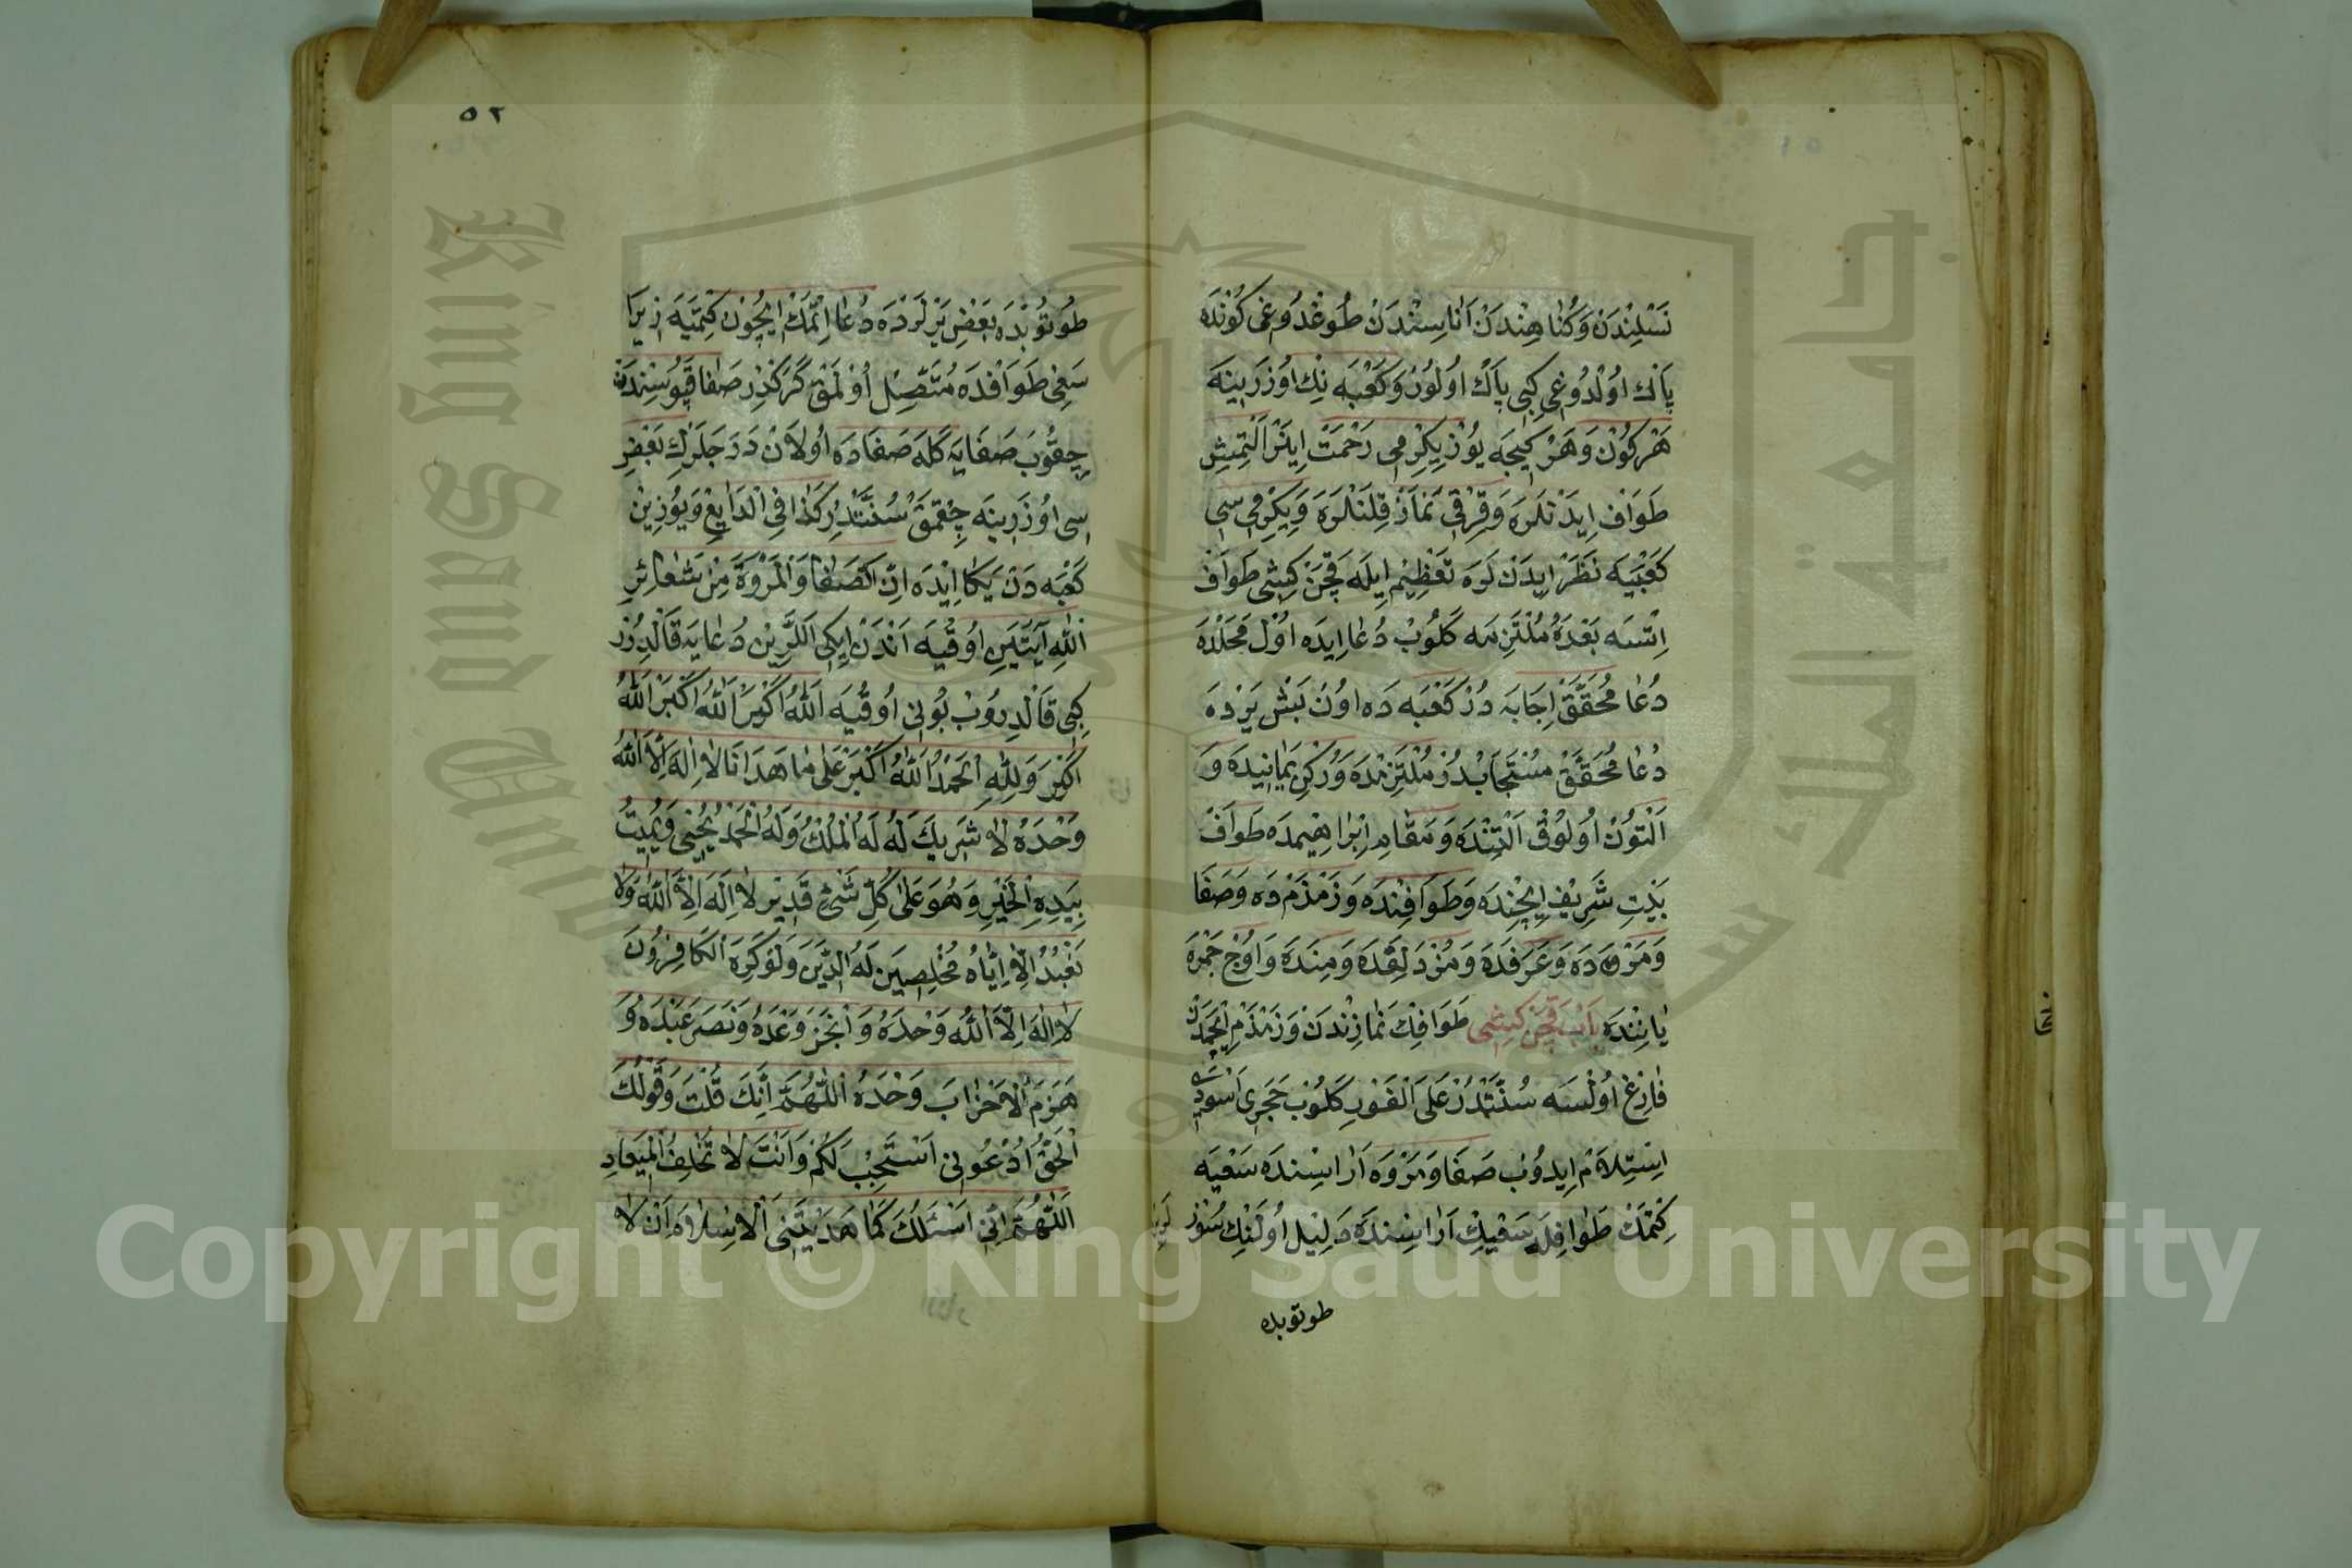 نَسْلِنْدَنْ وَكُنَا هِنْدَنْ اَنَاسِنْدَنْ طُوغْدُوغِى كُونْدَه
پَاكْ اوُلْدُوغِى كِبِى پَاكْ اوُلُورْ وَكَعْبَه نِكْ اوُزَرِينَه
هَرْ كُونْ وَهَرْ كِيجَه يُوزْ يِكِرْمِى رَحْمَتْ اِينَرْ اَلْتِمِيشِ
طَوَافْ اِيدَنْلَرَه وَقِرْقِى نَمَازْ قِلَنْلَرَه وَيِكِرْمِى سِى
كَعْبَيَه نَظَرْ اِيدَنْ لَرَه تَعْظِيْم اِيلَه قَچَنْ كِيشِى طَوَافْ
اِتْسَه بَعْدَهُ مُلْتَزِمَه كَلُوبْ دُعَا اِيدَه اوُلْ مَحَلْدَه
دُعَا مُحَقَّقْ اِجَابَه دُرْ كَعْبَه دَه اوُنْ بَشْ يَرْدَه
دُعَا مُحَقَّقْ مُسْتَجَابْدُرْ مُلْتَزَمْدَه وَرُكْنِ يَمَانِيدَه وَ
اَلْتُونْ اُولُوقْ اَلْتِنْدَه وَمَقَامِ اِبْرَاهِيمدَه طَوَافْ
بَيْتِ شَرِيفْ اِيچِنْدَه وَطَوَافِنْدَه وَزَمْزَمْ دَه وَصَفَا
وَمَرْوَه دَه وَعَرَفَدَه وَمُزْدَلِفَدَه وَمِنَدَه وَاوُچْ جَمْرَه
يَانِنْدَه بَابْ قَچَنْ كِيشِى طَوَافِكْ نَمَازِنْدَنْ وَزَمْزَمْ اِيچْمَدَنْ
فَارِغْ اوُلْسَه سُنَّتْدُرْ عَلَى الْفَوْرِ كَلُوبْ حَجَرِى اَسْوَدِ
اِسْتِلَامْ اِيدُوبْ صَفَا وَمَرْوَه اَرَاسِنْدَه سَعْيَه
كِتْمَكْ طَوَافِلَه سَعْيِكْ اَرَاسِنْدَه
طوتوبده
٥٢
طُوتُوبْدَه بَعْضِ يَرْلَرْدَه دُعَا اِتْمَكْ اِيچُونْ كِتْمَيَه زِيرَا
سَعْىِ طَوَافْدَه مُتَّصِلْ اوُلْمَقْ كَرَكْدِرْ صَفَا قَپُوسِنْدَنْ
چِقُوبْ صَفَايَه كَلَه صَفَادَه اوُلَانْ دَرَجَلَرِكْ بَعْضِ
سِى اوُزَرِينَه چِقْمَقْ سُنَّتْدِرْ كَذَا فِى الْبَدَايِعْ وَيُوزِينْ
كَعْبَه دَنْ يَكَا اِيْدَه اِنَّ الصَّفَا وَالْمَرْوَةَ مِنْ شَعَائِرِ
اللّٰهِ آيَتِيَنِ اوُقُيَه اَنْدَنْ اِيكِى اَلَّرِينْ دُعَايَه قَالْدِرُرْ
كِبِى قَالْدِرُوبْ بُونِى اوُقُيَه اَللّٰهُ اَكْبَرْ اَللّٰهُ اَكْبَرْ اَللّٰهُ
اَكْبَرَ وَلِلّٰهِ اَلْحَمْدُ اَللّٰهُ اَكْبَرْ عَلَى مَا هَدَانَا لَا اِلٰهَ اِلَّا اللّٰهُ
وَحْدَهُ لَا شَرِيكَ لَهُ لَهُ الْمُلْكُ وَلَهُ الْحَمْدُ يُحْيِى وَيُمِيتُ
بِيَدِهِ الْخَيْرِ وَهُوَ عَلَى كُلِّ شَىْءٍ قَدِيرٌ لَا اِلَهَ اِلَّا اللّٰهُ وَلَا
نَعْبُدُ اِلَّا اِيَّاهُ مُخْلِصِينَ لَهُ الدِّينَ وَلَوْ كَرِهَ الْكَافِرُونَ
لَا اِلٰهَ اِلَّا اللّٰهُ وَحْدَهُ وَاَنْجَزَ وَعْدَهُ وَنَصَرَ عَبْدَهُ وَ
هَزَمَ الْاَحْزَابَ وَحْدَهُ اَللّٰهُمَّ اَنِّكَ قُلْتَ وَقَوْلُكَ
الْحَقُّ اُدْعُونِى اَسْتَجِبْ لَكُمْ وَاَنْتَ لَا تُخْلِفُ الْمِيعَادِ
اَللّٰهُمَّ اِنِّى اَسْئَلُكَ كَمَا هَدَيْتَنِى الْاِسْلَامَ اَنْ لَا
King Saud University
جامعة الملك سعود
Copyright © King Saud University